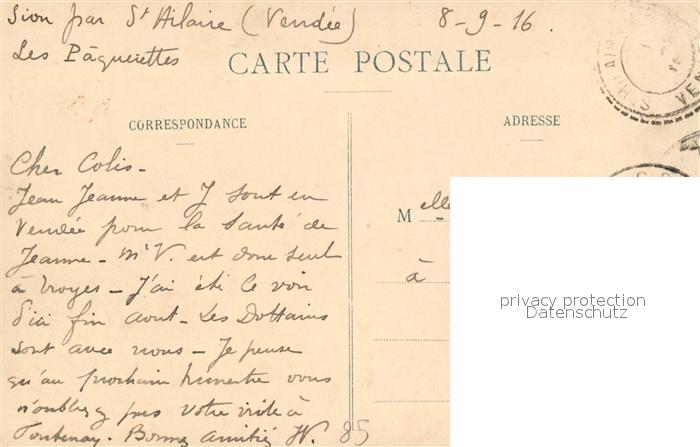 Sion par St Hilaire (Vendée) 8-9-16.
Les Pâquerettes
CARTE POSTALE
CORRESPONDANCE
ADRESSE
Cher Colis-
Jean Jeanne et J sont en
Vendée pour la santé de
Jeanne - Mr V. est donc seul
à Troyes - J'ai été le voir
d'ici fin aout - Les Dottains
sont avec nous - Je pense
qu'au prochain trimestre vous
n'oubliez pas votre visite à
Fontenay. Bonnes amitiés 85
Melle
à
privacy protection
Datenschutz